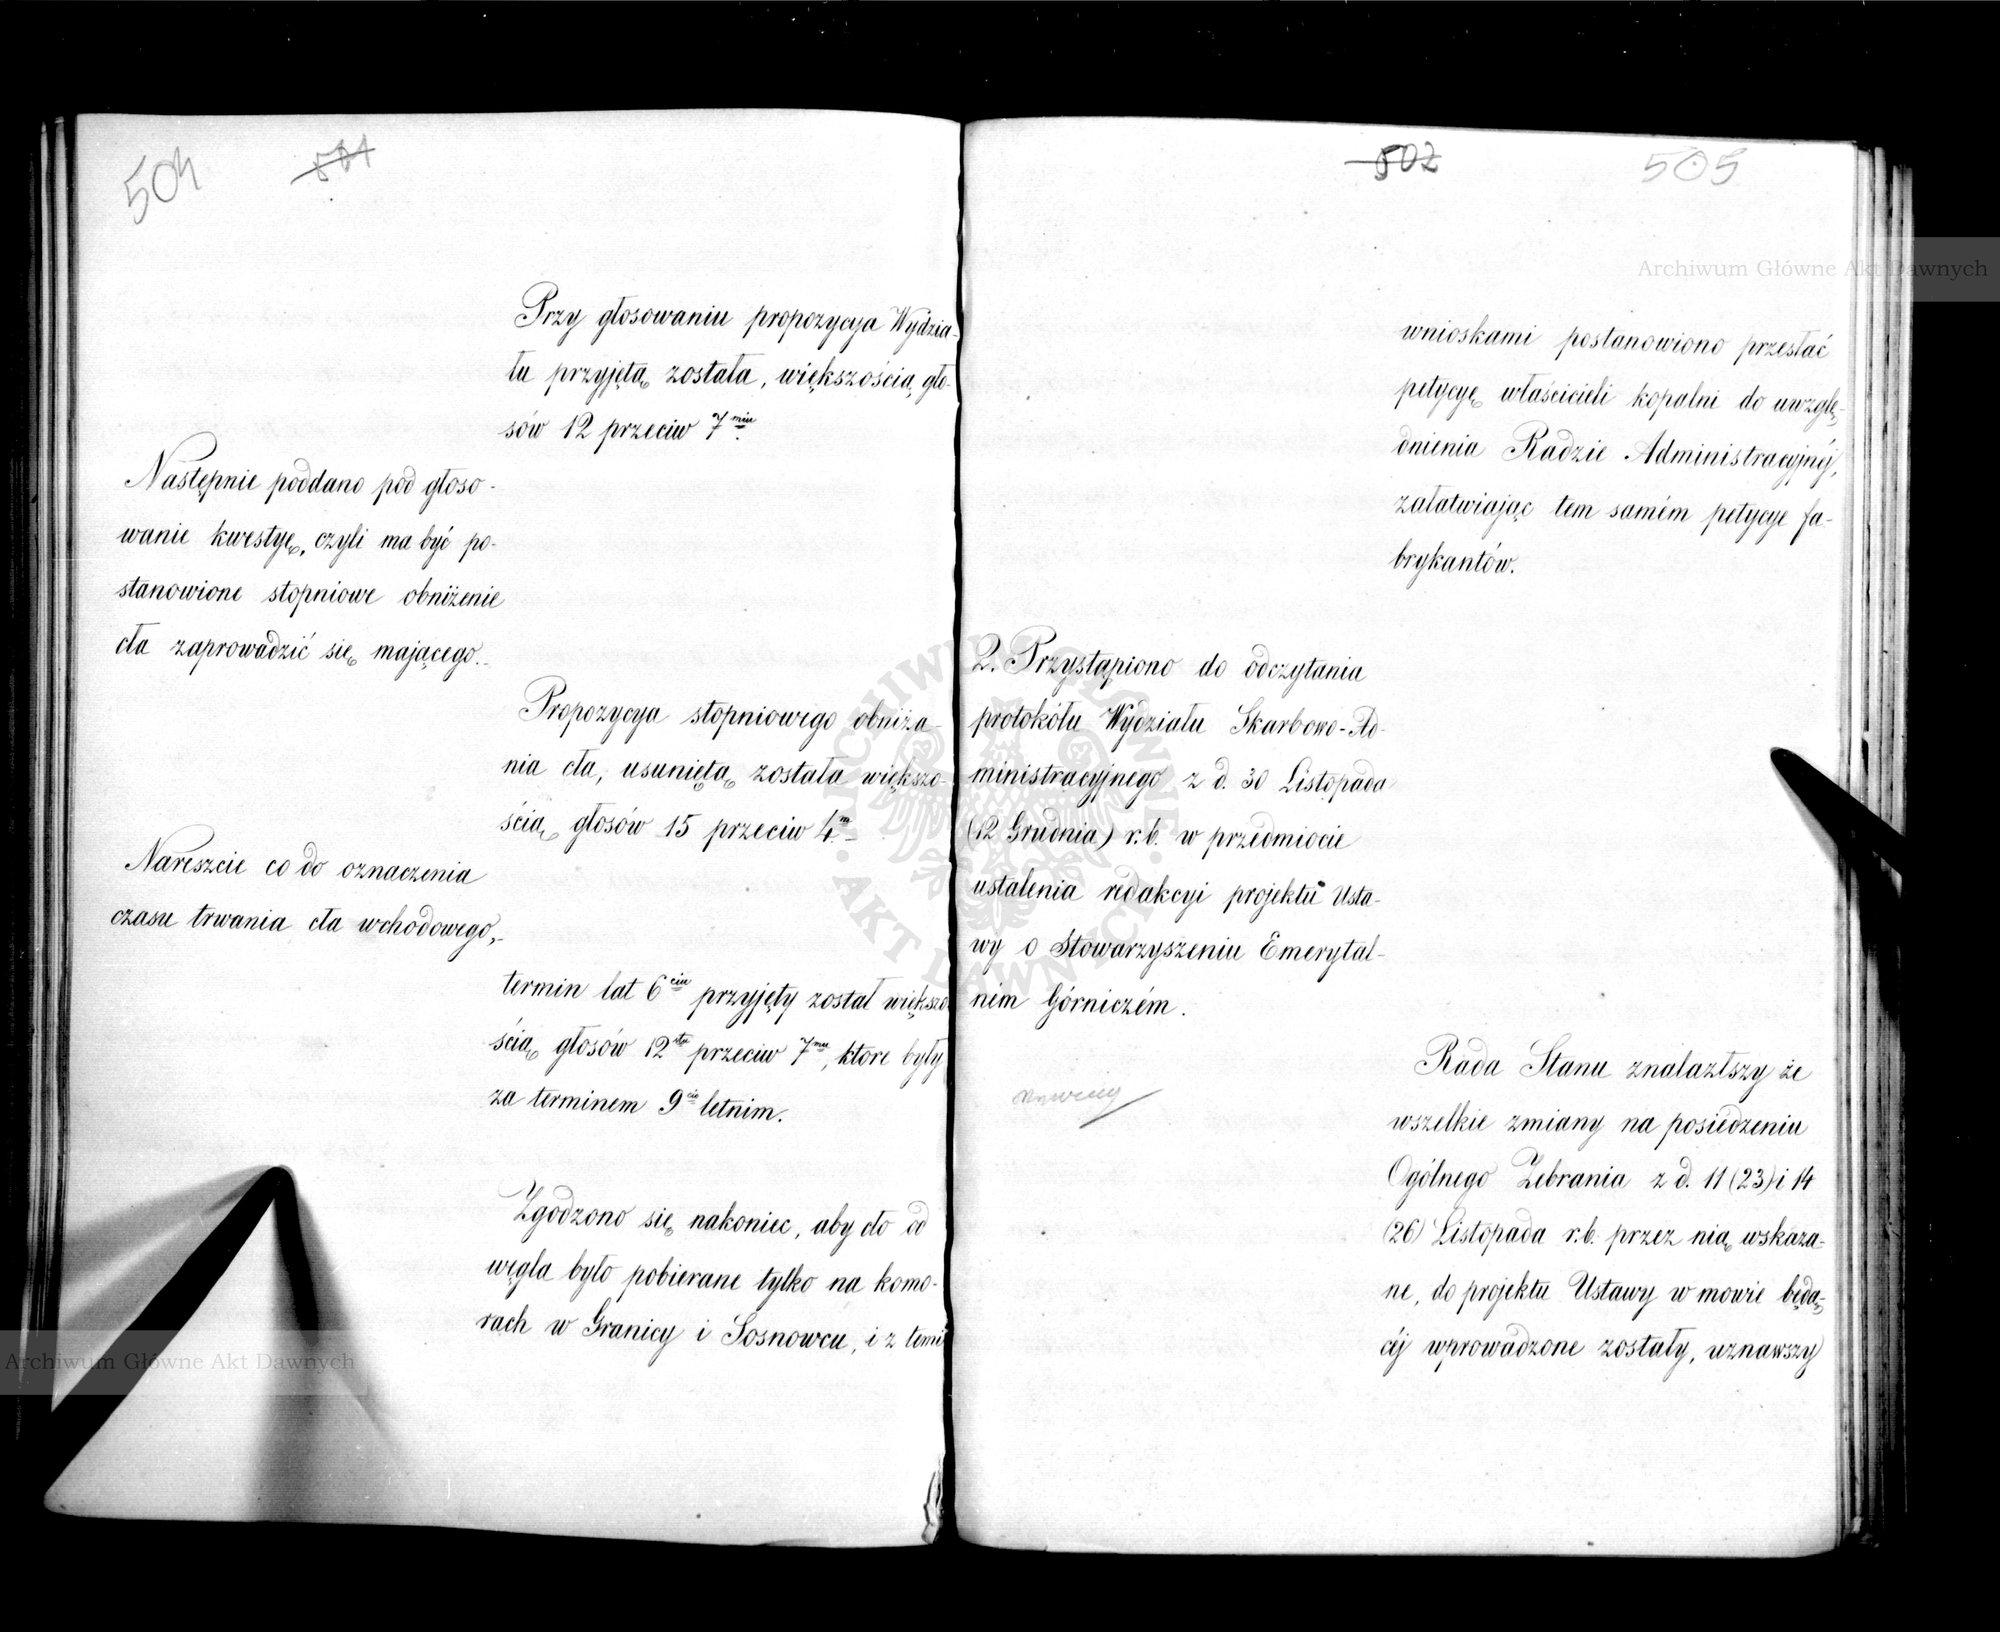 504
501
Przy głosowaniu propozycya Wydzia-
łu przyjętą została, większością gło-
sów 12 przeciw 7miu.
Następnie poddano pod głoso-
wanie kwestyę, czyli ma być po-
stanowione stopniowe obniżenie
cła zaprowadzić się mającego.
Propozycya stopniowego obniża-
nia cła, usuniętą została większo-
ścią głosów 15 przeciw 4m
Nareszcie co do oznaczenia
czasu trwania cła wchodowego,
termin lat 6ciu przyjęty został większo
ścią głosów 12stu przeciw 7miu, które były
za terminem 9cio letnim.
Zgodzono się nakoniec, aby cło od
węgla było pobierane tylko na komo-
rach w Granicy i Sosnowcu, i z temi
502
505
wnioskami postanowiono przesłać
petycyę właścicieli kopalni do uwzglę-
dnienia Radzie Administracyjnéj,
załatwiając tem samém petycye fa-
brykantów.
2. Przystąpiono do odczytania
protokółu Wydziału Skarbowo-Ad-
ministracyjnego z d. 30 Listopada
(12 Grudnia) r.b. w przedmiocie
ustalenia redakcyi projektu Usta-
wy o Stowarzyszeniu Emerytal-
ném Górniczém.
Rada Stanu znalazłszy że
wszelkie zmiany na posiedzeniu
Ogólnego Zebrania z d. 11 (23) i 14
(26) Listopada r.b. przez nią wskaza-
ne, do projektu Ustawy w mowie będą-
céj wprowadzone zostały, uznawszy
Archiwum Główne Akt Dawnych
ARCHIWUM GŁÓWNE AKT DAWNYCH
Archiwum Główne Akt Dawnych